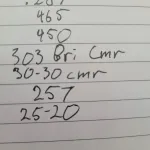 465
450
303 Bri Cmr
30-30 cmr
257
25-20